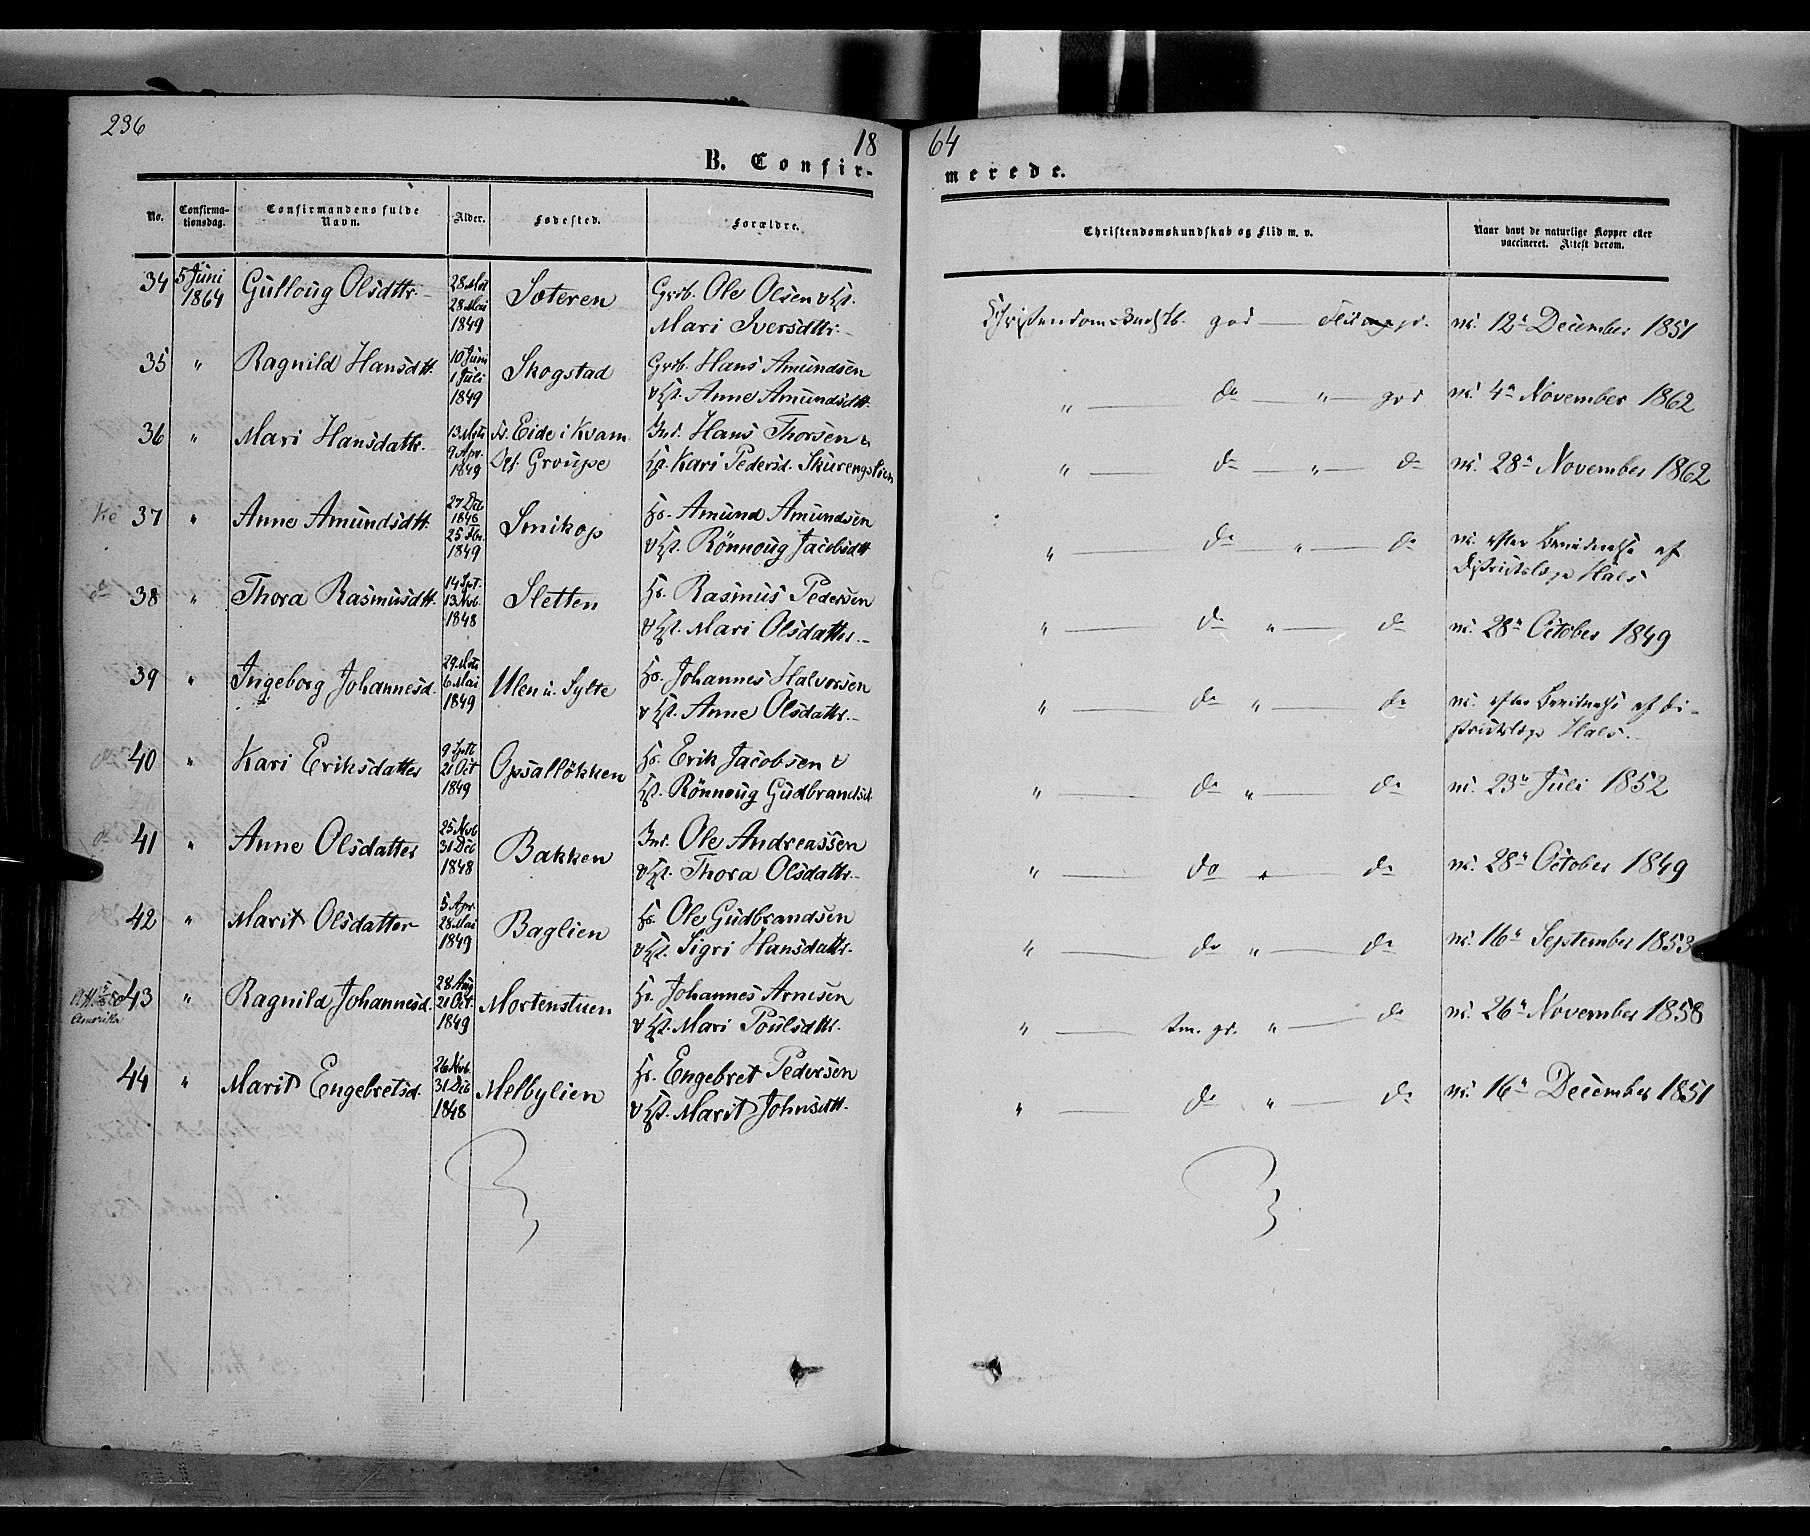 236
18 64
B. Confir- merede.
No. Confirma-tionsdag. Confirmandens fulde Navn. Alder. Fødested. Forældre. Christendomskundskab og Flid m. v. Naar havt de naturlige Kopper eller vaccineret. Attest derom.
34 5 Juni 1864 Gulloug Olsdttr. 28 Mai 1849 Soteren Grb. Ole Olsen v Hst.
Mari Iversdttr. god vc. 12te December 1851
35 " Ragnild Hansdtt. 10 Juni 1 Juli 1849 Skogstad Grb. Hans Amundsen
v Hst. Anne Amundsdtt. " do " god vc. 4de November 1862
36 " Mari Hansdattr. 13 Mrts 9 Apr. 1849 Eide i Kvam Ind. Hans Thorsen v
Groupe Kari Pedersd. Skurengslien " do " do vc. 28de November 1862
37 " Anne Amundsdtt. 27 Dec 1848 25 Fbr. 1849 Smikop Hs. Amund Amundsen
v Hst. Rönnoug Jacobsdtt " do " do vc. efter af
Hals
38 " Thora Rasmusdtt. 14 Spt. 13 Nvb. 1848 Sletten Hs. Rasmus Pedersen
v Hst. Mari Olsdatter " do " do vc. 28de October 1849
39 " Ingeborg Johannesd. 29 Mrts 6 Mai 1849 Ulen u. Sylte Hs. Johannes Halvorsen
v Hst. Anne Olsdattr. " do " do vc. efter af Di-
Hals
40 " Kari Eriksdatter 9 Sptb 21 Oct 1849 Opsalløkken Hs. Erik Jacobsen v
Hst. Rönnoug Gudbrandsd. " do " do vc. 23de Juli 1852
41 " Anne Olsdatter 25 Nvb 31 Dec 1848 Bakken Ind. Ole Andreassen
v Hst. Thora Olsdattr. " do " do vc. 28de October 1849
42 " Marit Olsdatter 5 Apr. 28 Mai 1849 Baglien Hs. Ole Gudbrandsen
v Hst. Sigri Hansdattr. " do " do vc. 16de September 1853
Amerika 43 " Ragnild Johannesd. 28 Aug 21 Oct. 1849 Mortenstuen Hs. Johannes Arnesen
v Hst. Mari Poulsdttr. " tm. gr. " do vc. 26de November 1858
44 " Marit Engebretsd. 26 Nvb. 31 Dec 1848 Melbylien Hs. Engebret Pedersen
v Hst. Marit Johnsdtt. " do " do vc. 16de December 1851